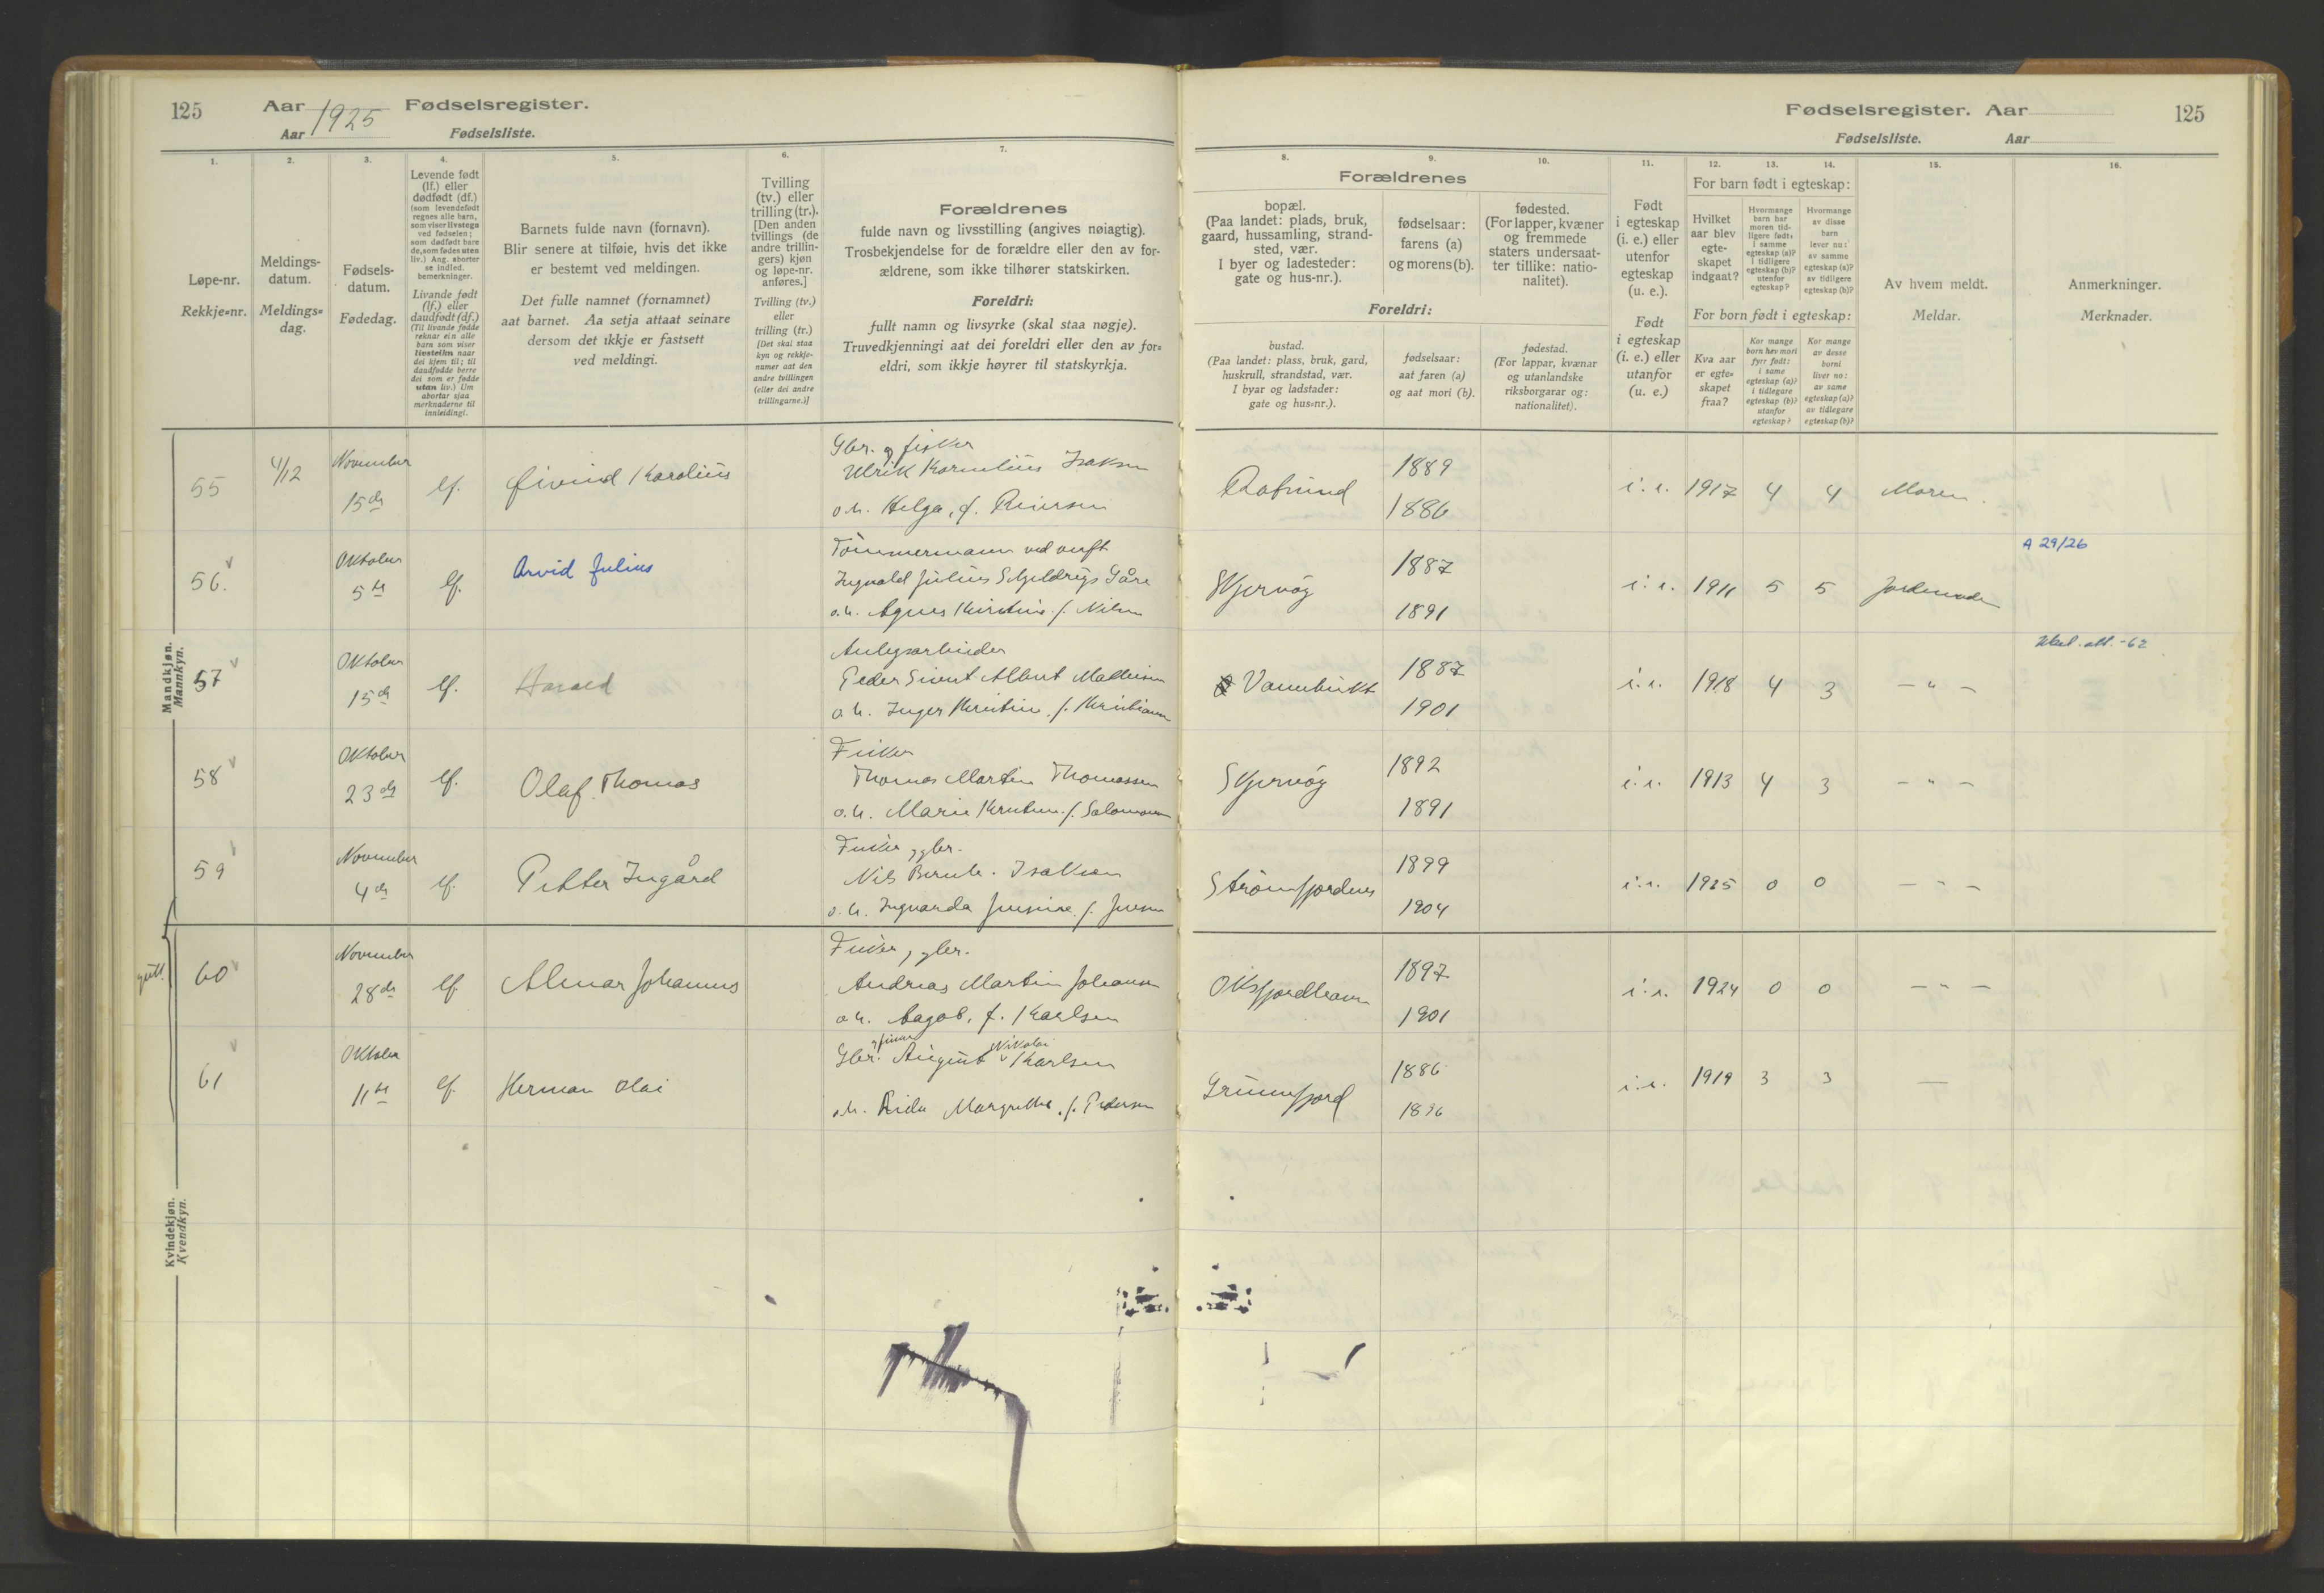 125 Aar 1925 Fødselsregister.
Aar Fødselsliste.
1.
Løpe-nr.
Rekkje-nr.
2.
Meldings-
datum.
Meldings-
dag.
3.
Fødsels-
datum.
Fødedag.
4.
Levende født
(lf.) eller
dødfødt (df.)
(som levendefødt
regnes alle barn,
som viser livstegn
ved fødselen;
som dødfødt bare
de, som fødes uten
liv.) Ang. aborter
se indled.
bemerkninger.
Livande født
(lf.) eller
daudfødt (df.)
(Til livande fødde
reknar ein alle
barn som viser
livsteikn naar
dei kjem til; til
daudfødde berre
dei som er fødde
utan liv.) Um
abortar sjaa
merknaderne til
innleidingi.
5.
Barnets fulde navn (fornavn).
Blir senere at tilføie, hvis det ikke
er bestemt ved meldingen.
Det fulle namnet (fornamnet)
aat barnet. Aa setja attaat seinare
dersom det ikkje er fastsett
ved meldingi.
6.
Tvilling
(tv.) eller
trilling (tr.).
[Den anden
tvillings (de
andre trillin-
gers) kjøn
og løpe-nr.
anføres.]
Tvilling (tv.)
eller
trilling (tr.)
[Det skal staa
kyn og rekkje-
numer aat den
andre tvillingen
(eller dei andre
trillingarne.)]
7.
Forældrenes
fulde navn og livsstilling (angives nøiagtig).
Trosbekjendelse for de forældre eller den av for-
ældrene, som ikke tilhører statskirken.
Foreldri:
fullt namn og livsyrke (skal staa nøgje).
Truvedkjenningi aat dei foreldri eller den av for-
eldri, som ikkje høyrer til statskyrkja.
Mandkjøn.
Mannkyn.
55 4/12 November 15de lf. Øivind Karolius
Gbr. og fisker
Ulrik Kornelius Isaksen
o.h. Helga, f. Reiersen
56. Oktober 5te lf. Arvid Julius
Tømmermann ved verft
Ingvald Julius
o.h. Agnes Kirstine f. Nilsen
57 Oktober 15de lf. Harald
Anlegsarbeider
Peder Sivert Albert Mathisen
o.h. Inger Kirstine f. Kristiansen
58 Oktober 23de lf. Olaf Thomas
Fisker
Thomas Martin Thomassen
o.h. Marie f. Salomonsen
59 November 4de lf. Petter Ingård
Fisker, gbr.
Nils Bernh. Isaksen
o.h. Ingvarda f. Jensen
60 November 28de lf. Almar Johannes
Fisker, gbr.
Andreas Martin Johansen
o.h. Aagot, f. Karlsen
61 Oktober 11te lf. Herman Olai
Gbr. August Nikolai Karlsen
o.h. Margrethe, f. Pedersen
Kvindekjøn.
Kvendkyn.
Fødselsregister. Aar 125
Fødselsliste. Aar
8.
Forældrenes
bopæl.
(Paa landet: plads, bruk,
gaard, hussamling, strand-
sted, vær.
I byer og ladesteder:
gate og hus-nr.).
Foreldri:
bustad.
(Paa landet: plass, bruk, gard,
huskrull, strandstad, vær.
I byar og ladstader:
gate og hus-nr.).
9.
fødselsaar:
farens (a)
og morens (b).
fødselsaar:
aat faren (a)
og aat mori (b).
10.
fødested.
(For lapper, kvæner
og fremmede
staters undersaat-
ter tillike: natio-
nalitet).
fødestad.
(For lappar, kvænar
og utanlandske
riksborgarar og:
nationalitet).
11.
Født
i egteskap
(i. e.) eller
utenfor
egteskap
(u. e.).
Født
i egteskap
(i. e.) eller
utanfor
(u. e.)
12. 13. 14.
For barn født i egteskap:
Hvilket
aar blev
egte-
skapet
indgaat?
Hvormange
barn har
moren tid-
ligere født:
i samme
egteskap (a)?
i tidligere
egteskap (b)?
utenfor
egteskap?
Hvormange
av disse
barn
lever nu:
av samme
egteskap (a)?
av tidligere
egteskap (b)?
For born født i egteskap:
Kva aar
er egte-
skapet
fraa?
Kor mange
born hev mori
fyrr født:
i same
egteskap (a)?
i tidlegare
egteskap (b)?
utanfor
egteskap?
Kor mange
av desse
borni
liver no:
av same
egteskap (a)?
av tidlegare
egteskap (b)?
15.
Av hvem meldt.
Meldar.
16.
Anmerkninger.
Merknader.
1889
1886 i.e. 1917 4 4 Moren.
Skjervøy 1887
1891 i.e. 1911 5 5 Jordemoder A 29/26
Vannebukt 1887
1901 i.e. 1918 4 3 - " -
Skjervøy 1892
1891 i.e. 1913 4 3 - " -
Strømfjorden 1899
1904 i.e. 1925 0 0 - " -
Oksfjordhavn 1897
1901 i.e. 1924 0 0 - " -
Grunnfjord 1886
1896 i.e. 1919 3 3 -